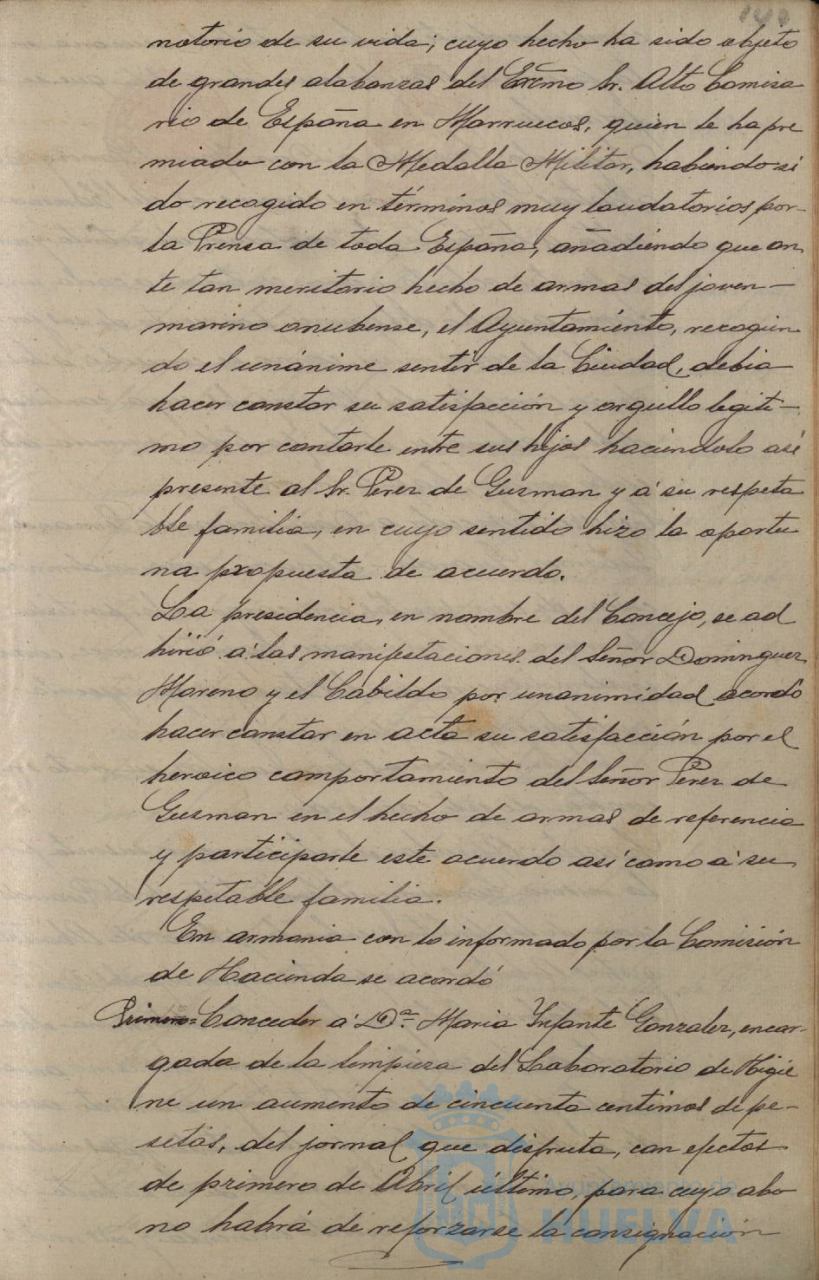 notorio de su vida; cuyo hecho ha sido objeto
de grandes alabanzas del Excmo Sr. Alto Comisa
rio de España en Marruecos, quien le ha pre
miado con la Medalla Militar, habiendo si
do recogido en términos muy laudatorios por-
la Prensa de toda España, añadiendo que an
te tan meritorio hecho de armas del joven-
marino onubense, el Ayuntamiento, recogien
do el unánime sentir de la Ciudad, debia
hacer constar su satisfacción y orgullo legiti-
mo por contarle entre sus hijos haciendolo asi
presente al Sr. Pérez de Guzman y á su respeta
ble familia, en cuyo sentido hizo la oportu
na propuesta de acuerdo.
La presidencia, en nombre del Concejo, se ad
hirió á las manifestaciones del Señor Dominguez
Moreno y el Cabildo por unanimidad acordó
hacer constar en acta su satisfacción por el
heroico comportamiento del Señor Pérez de
Guzman en el hecho de armas de referencia
y participarle este acuerdo asi como á su
respetable familia.
En armonia con lo informado por la Comisión
de Hacienda se acordó
Primero= Conceder á Dª Maria Infante Gonzalez, encar-
gada de la limpieza del Laboratorio de Higie
ne un aumento de cincuenta centimos de pe-
setas, del jornal que disfruta, con efectos
de primero de Abril último, para cuyo abo
no habrá de reforzarse la consignación
Ayuntamiento de
HUELVA